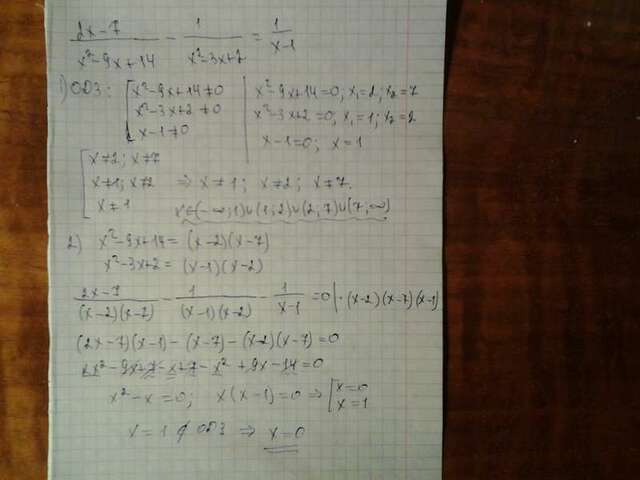 (2x-7)/(x²-9x+14) - 1/(x²-3x+2) = 1/(x-1)
1) ОДЗ: [x²-9x+14≠0 | x²-9x+14=0; x₁=2; x₂=7
x²-3x+2≠0 | x²-3x+2=0; x₁=1; x₂=2
x-1≠0 | x-1=0; x=1
[x≠2; x≠7
x≠1; x≠2 ⇒ x≠1; x≠2; x≠7.
x≠1 x∈(-∞;1)∪(1;2)∪(2;7)∪(7;∞)
2) x²-9x+14=(x-2)(x-7)
x²-3x+2=(x-1)(x-2)
(2x-7)/((x-2)(x-7)) - 1/((x-1)(x-2)) - 1/(x-1) =0 |·(x-2)(x-7)(x-1)
(2x-7)(x-1)-(x-7)-(x-2)(x-7)=0
2x²-9x+7-x+7-x²+9x-14=0
x²-x=0; x(x-1)=0 ⇒ [x=0
x=1
x=1 ∉ ОДЗ ⇒ x=0